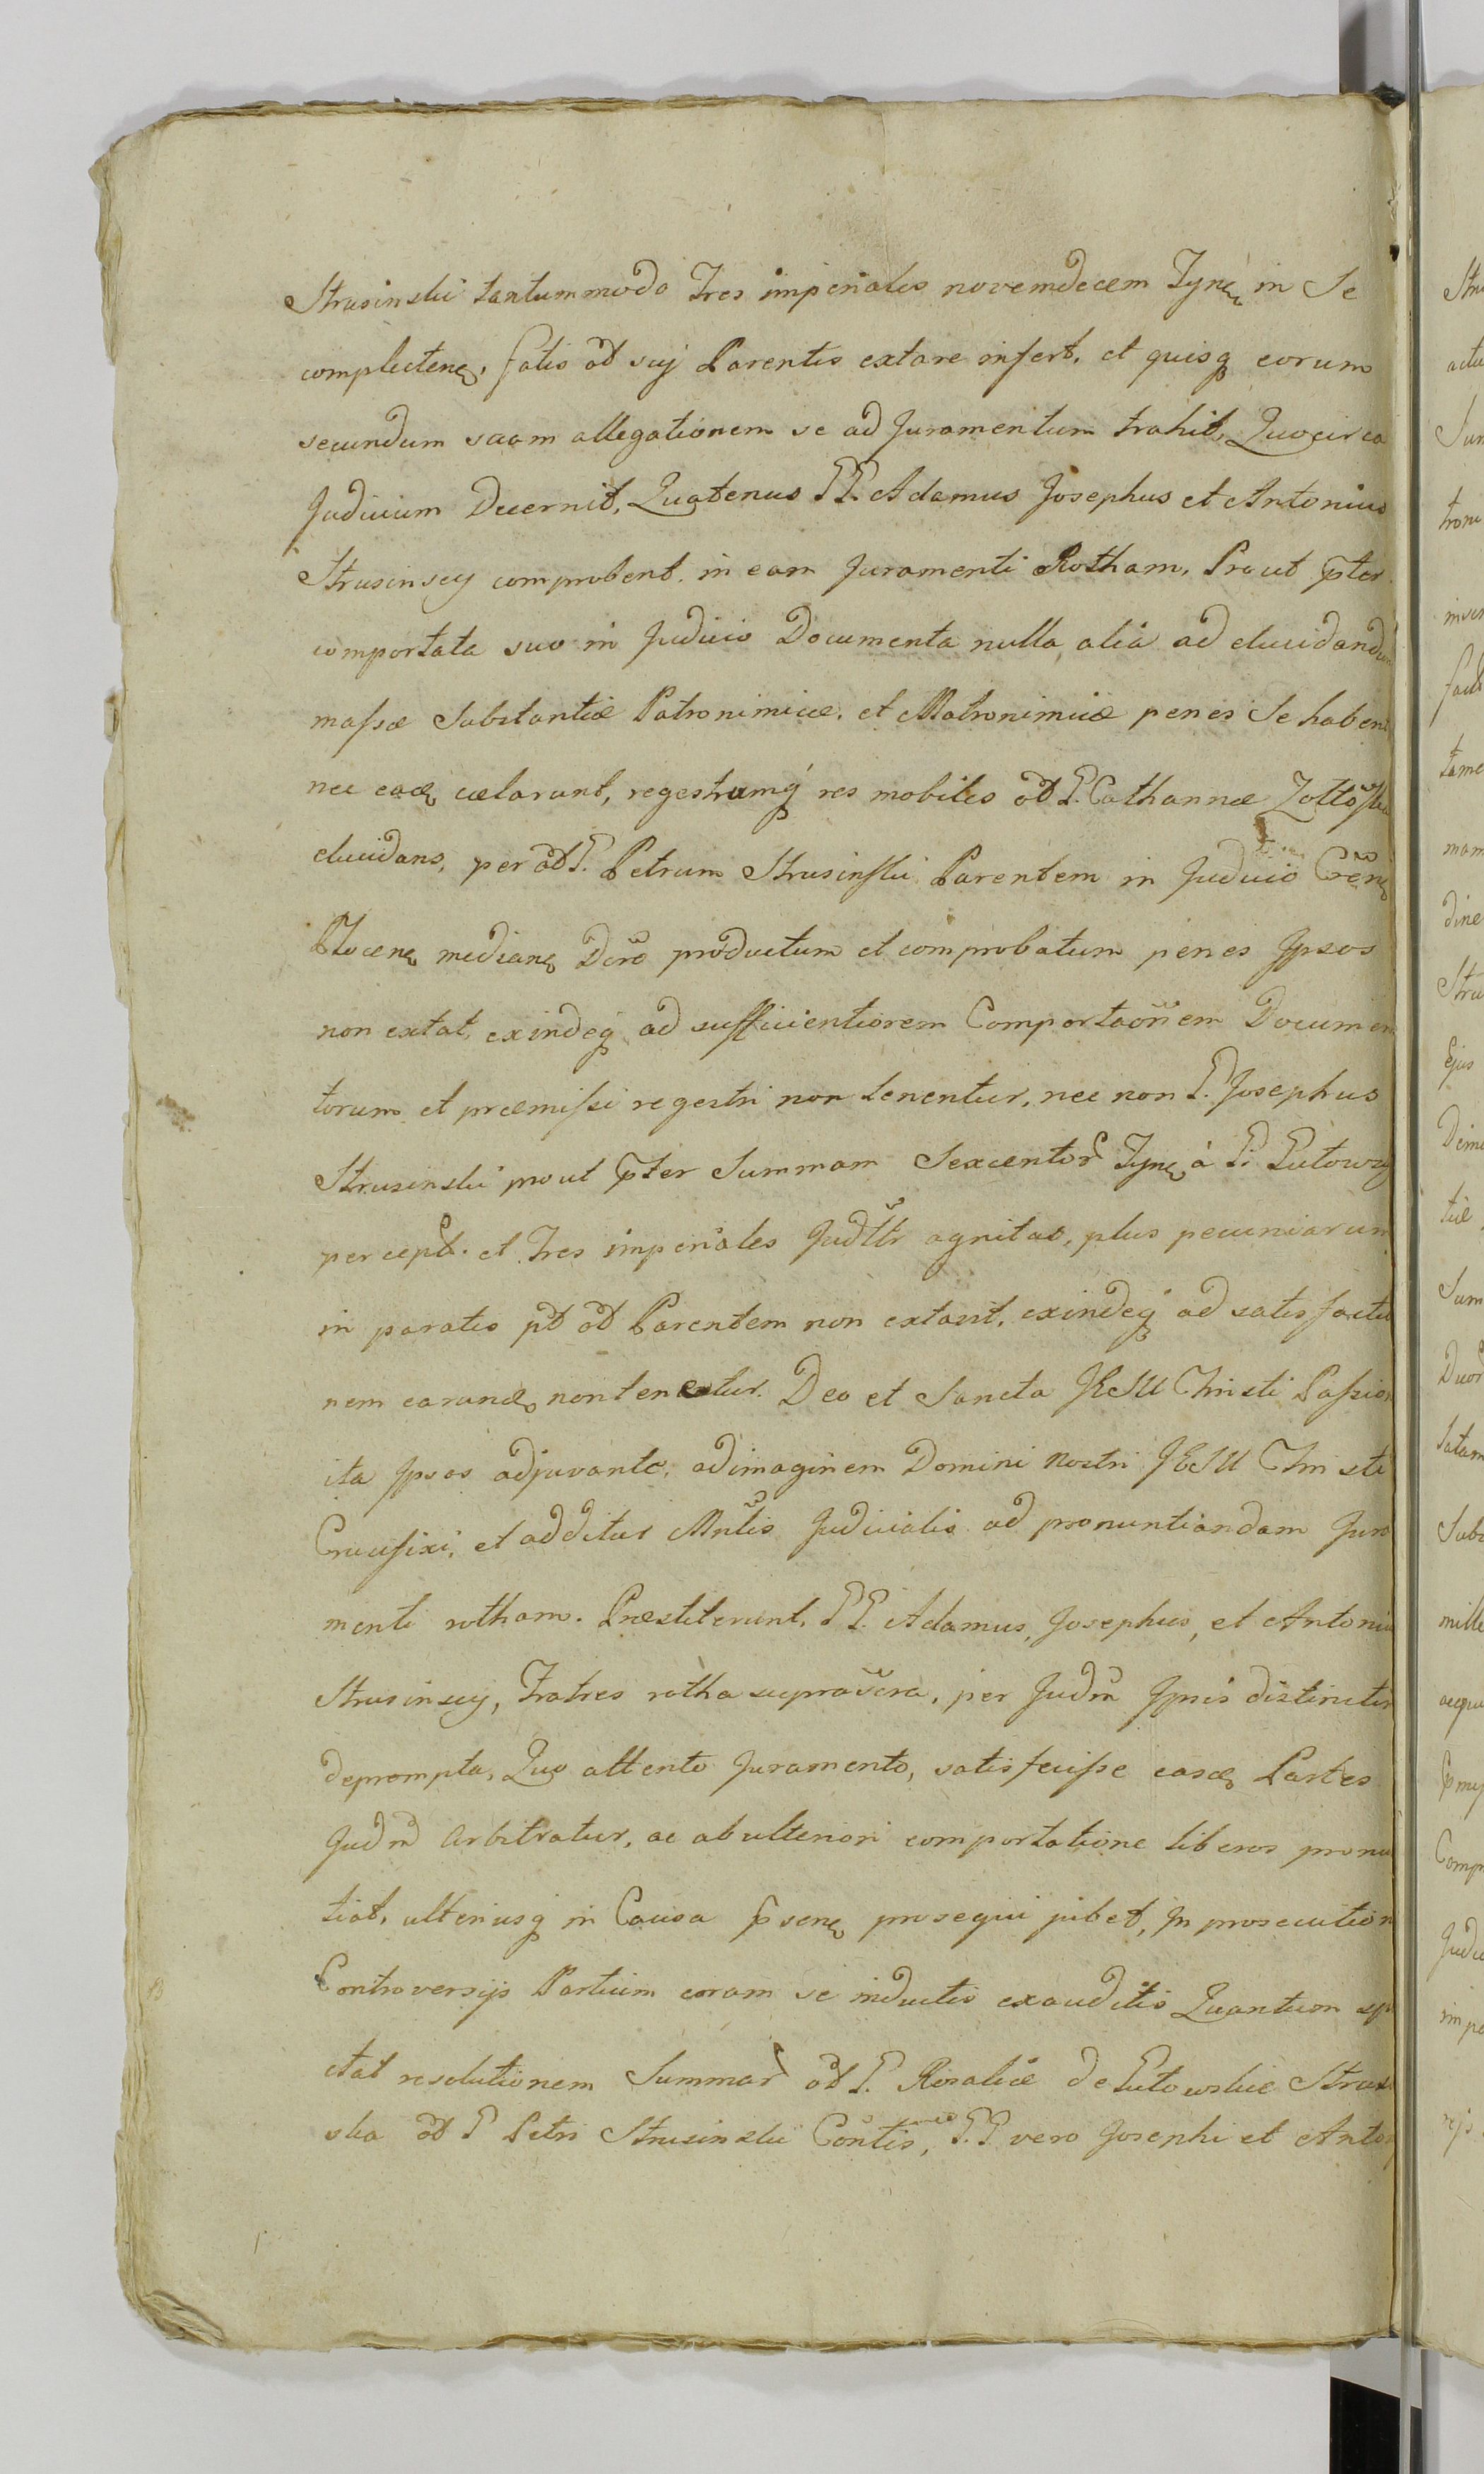 Strusinski tantummodo Tres imperiales novemdecem Tynę in Se
complectenę, fatis ód suj Parentis extare infert, et quisq eorum
secundum suam allegationem se ad Juramentum trahit, Quocirca
Judicium Decernit, Quatenus PP. Adamus Josephus et Antonius
Strusinscy comprobent in eam Juramenti Rotham, Prout pter
comportata suo in Judicio Documenta nulla alia ad elucidandu
massæ Substantiæ Patronimicæ, et Matronimicæ penes Se haben
nec eaę cælarunt, regestrumq res mobiles ód P. Catharinæ
elucidans, per ód P. Petrum Strusinski Parentem in Judicio
Plocenę medianę productum et comprobatum penes Ipsos
non extat, exindeq ad sufficientiorem Comportaõnem Documen
torum et præmissi regestri non tenentur, nec non P. Josephus
Strusinski prout pter Summam Sexcentor Tynę à P.
percept. et Tres imperiales Judllr agnitas, plus pecuniarum
in paratis pt ód Parentem non extant, exindeq ad satisfactio
nem earunę non tenetur. Deo et Sancta JESU Christi Passion
ita Ipsos adjuvante, ad imaginem Domini Nostri JESU Christi
Crucifixi, et additur Mntis Judicialis ad pronuntiandam Jura
menti rotham. Præstiterunt, PP. Adamus, Josephus, et Antoniu
Strusinscy, Fratres rotha supra, per Judm Ipsis distincte
deprompta, Quo attento Juramento, satisfecisse easę Partes
Judm arbitratur, ac ab ulteriori comportatione liberos pronu
tiat, ulteriusq in Causa psenę prosequi jubet, In prosecution
Controversijs Partium coram se inductis exauditis Quantum sp
ctat resolutionem Summar ód P. Rosaliæ de Strusi
ska ód P Petri Strusinski Contis, PP vero Josephi et Anto